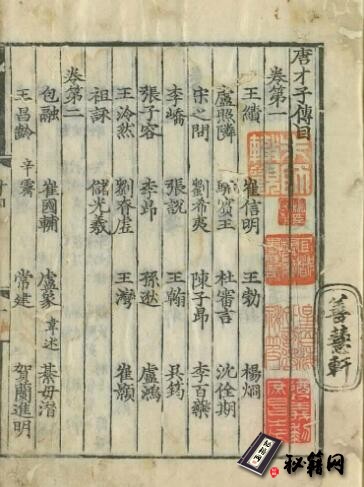 唐才子傳目
卷第一
王績 崔信明 王勃 楊烱
盧照隣 駱賓王 杜審言 沈佺期
宋之問 劉希夷 陳子昂 李百藥
李嶠 張説 王翰 吴筠
張子容 李昂 孫逖 盧鴻
王泠然 劉眘虛 王灣 崔顥
祖詠 儲光羲
卷第二
包融 崔國輔 盧象 韋述 綦毋潜
王昌齡 辛霽 常建 賀蘭進明
善慧軒
秘籍网